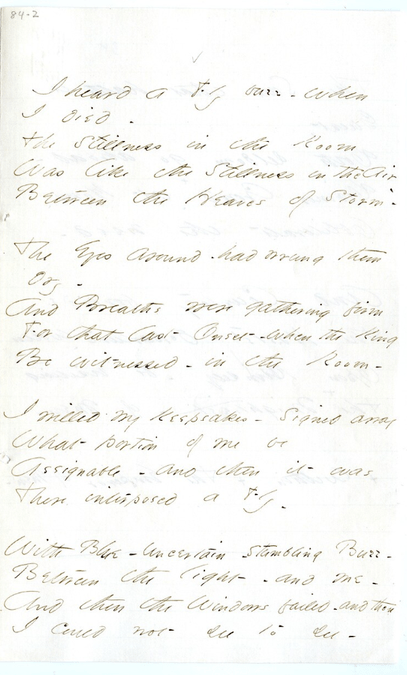 84-2
I heard a Fly buzz - when
I died -
The Stillness in the Room
Was like the Stillness in the Air -
Between the Heaves of Storm -
The Eyes around - had wrung them
dry -
And Breaths were gathering firm
For that last Onset - when the King
Be witnessed - in the Room -
I willed my Keepsakes - Signed away
What portion of me be
Assignable - and then it was
There interposed a Fly -
With Blue - uncertain stumbling Buzz -
Between the light - and me -
And then the Windows failed - and then
I could not see to see -